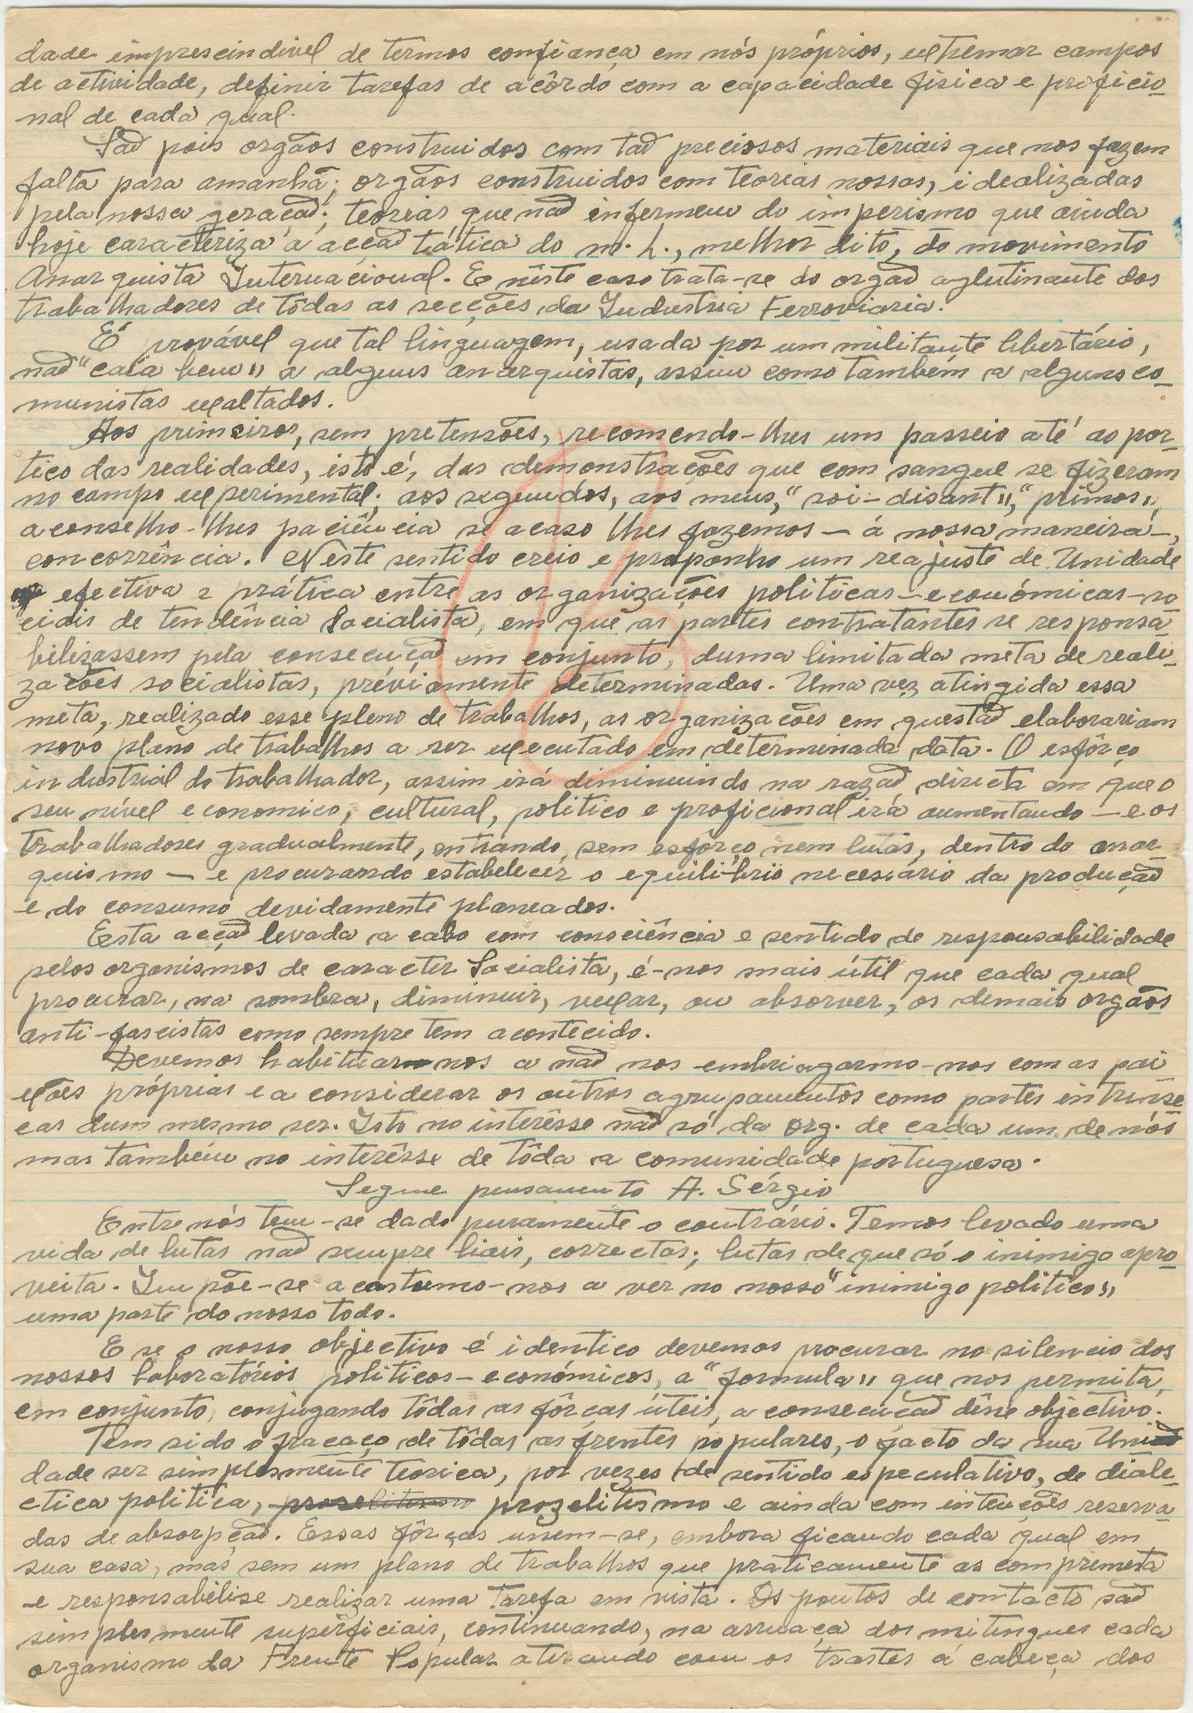 dade imprescindivel de termos confiança em nós próprios, extremar campos
de actividade, definir tarefas de acôrdo com a capacidade fisica e proficio-
nal de cada qual.
Saõ pois orgãos construidos com taõ preciosos materiais que nos fazem
falta para amanhã; orgãos construidos com teorias nossas, idealizadas
pela nossa geraçaõ; teorias que naõ enfermem do imperismo que ainda
hoje caracteriza a acçaõ tática do m. L., melhor dito, do movimento
Anarquista Internacional. E nêste caso trata-se do orgaõ aglutinante dos
trabalhadores de tôdas as secções da Industria Ferroviaria.
É provável que tal linguagem, usada por um militante libertário,
naõ "caia bem" a alguns anarquistas, assim como tambem a alguns co-
munistas exaltados.
Aos primeiros, sem pretensões, recomendo-lhes um passeio até ao por-
tico das realidades, isto é, das demonstrações que com sangue se fizeram
no campo experimental; aos segundos, aos meus, "soi-disant", "primos",
aconselho-lhes paciência se acaso lhes fazemos — á nossa maneira —,
concorrência. Neste sentido creio e proponho um reajuste de Unidade
efectiva e prática entre as organizações politicas-económicas-so
ciais de tendência Socialista, em que as partes contratantes se responsa
bilizassem pela consecuçaõ em conjunto, duma limitada meta de reali-
zações socialistas, préviamente determinadas. Uma vez atingida essa
meta, realizado esse pleno de trabalhos, as organizações em questaõ elaborariam
novo plano de trabalhos a ser executado em determinada data. O esfôrço
industrial do trabalhador, assim irá diminuindo na razaõ directa em que o
seu nível economico, cultural, politico e proficional irá aumentando — e os
trabalhadores gradualmente, entrando, sem esfôrço nem lutas, dentro do anar-
quismo — e procurando estabelecer o equilibrio necessário da produçaõ
e do consumo devidamente planeados.
Esta acçaõ levada a cabo com consciência e sentido de responsabilidade
pelos organismos de caracter Socialista, é-nos mais útil que cada qual
procurar, na sombra, diminuir, vexar, ou absorver, os demais orgãos
anti-fascistas como sempre tem acontecido.
Devemos habituar-nos a naõ nos embriagarmo-nos com as pai
xões próprias e a considerar os outros agrupamentos como partes intrinse
cas dum mesmo ser. Isto no interêsse naõ só da org. de cada um de nós
mas tambéin no interêsse de tôda a comunidade portuguesa.
Segue pensamento A. Sérgio
Entre nós tem-se dado puramente o contrário. Temos levado uma
vida de lutas naõ sempre liais, correctas; lutas de que só o inimigo apro-
veita. Impõe-se acostumo-nos a ver no nosso "inimigo politico"
uma parte do nosso todo.
E se o nosso objectivo é identico devemos procurar no silencio dos
nossos laboratórios politicos-económicos, a "formula" que nos permita,
em conjunto, conjugando tôdas as fôrças úteis, a consecuçaõ dêsse objectivo.
Tem sido o fracaço de tôdas as frentes populares, o facto da sua Uni
dade ser simplesmente teorica, por vezes de sentido especulativo, de diale-
ctica politica, prozelitismo e ainda com intenções reserva-
das de absorpçaõ. Essas fôrças unem-se, embora ficando cada qual em
sua casa, mas sem um plano de trabalhos que praticamente as comprometa
e responsabilise realizar uma tarefa em vista. Os pontos de contacto saõ
simplesmente superficiais, continuando, na arruaça dos mitingues cada
organismo da Frente Popular atirando com os trastes á cabeça dos